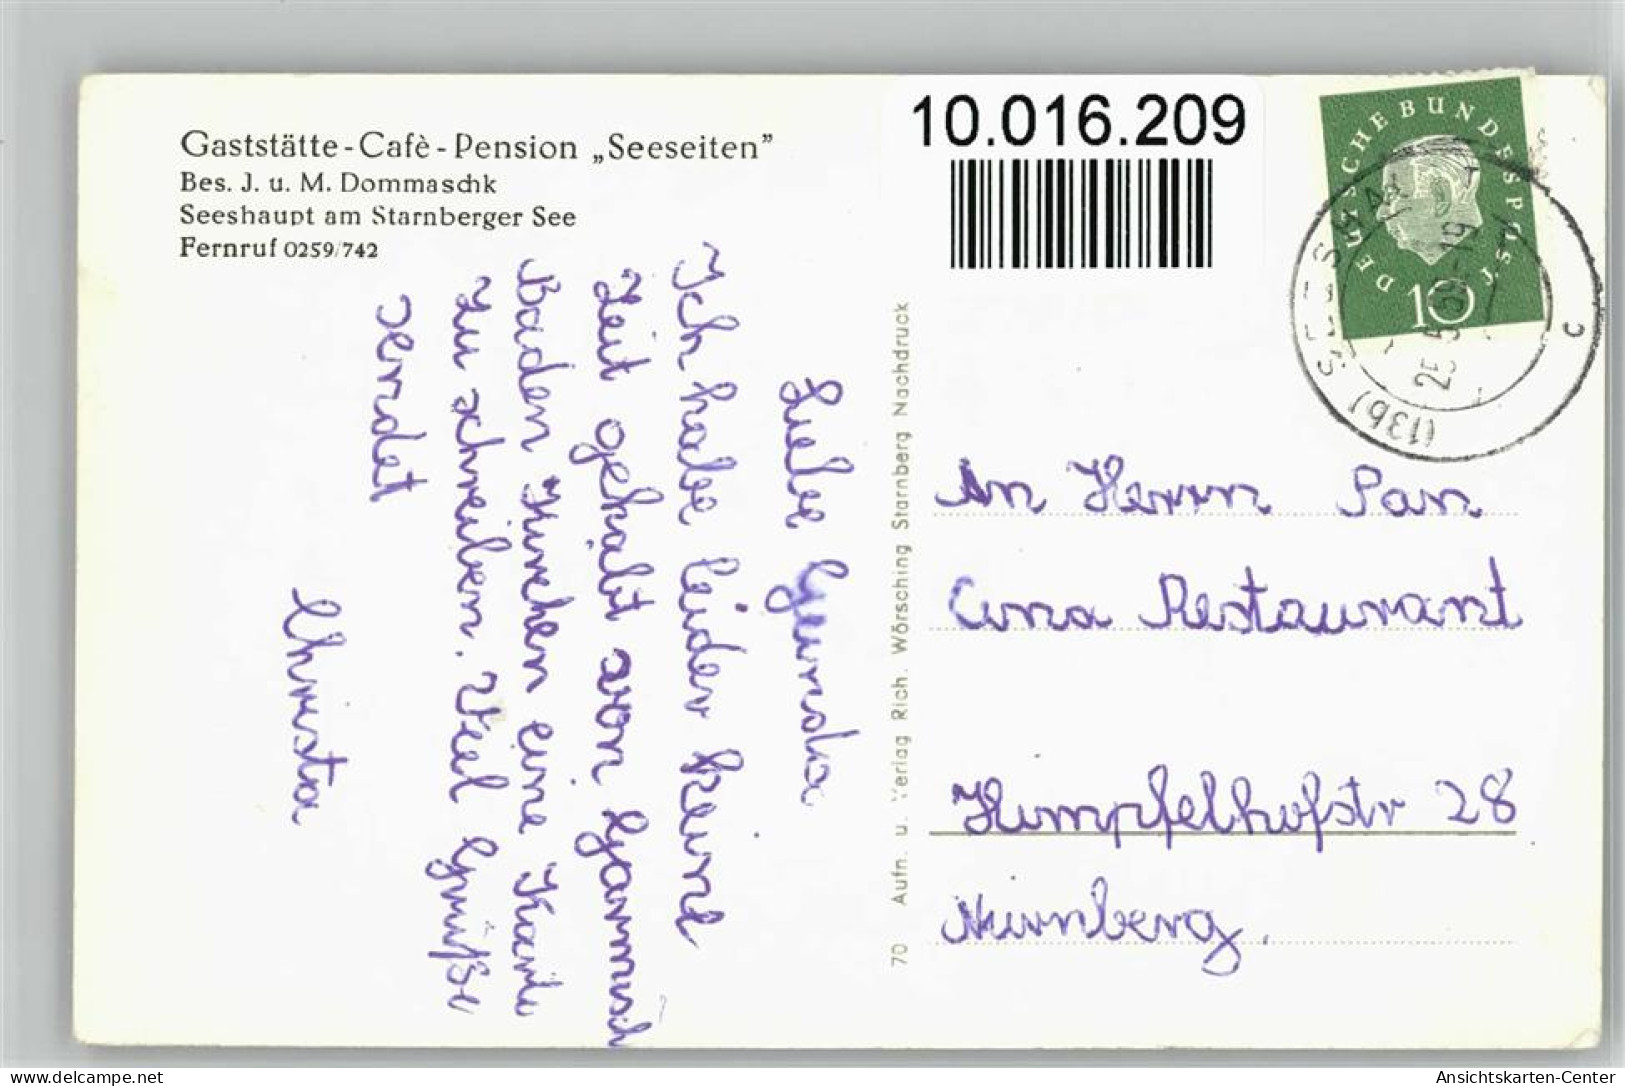 Gaststätte - Cafè - Pension „Seeseiten"
Bes. J. u. M. Dommaschk
Seeshaupt am Starnberger See
Fernruf 0259/742
10.016.209
DEUTSCHE BUNDESPOST
10
(13b) SEESHAUPT
c
Liebe Gerda
Ich habe leider keine
Zeit gehabt von Garmisch
Baden München eine Karte
zu schreiben. Viel Grüße
sendet
Christa
70 Aufn. u. Verlag Rich. Wörsching Starnberg Nachdruck
An Herrn Pan
China Restaurant
Himpfelhofstr 28
Nürnberg.
delcampe.net
Ansichtskarten-Center